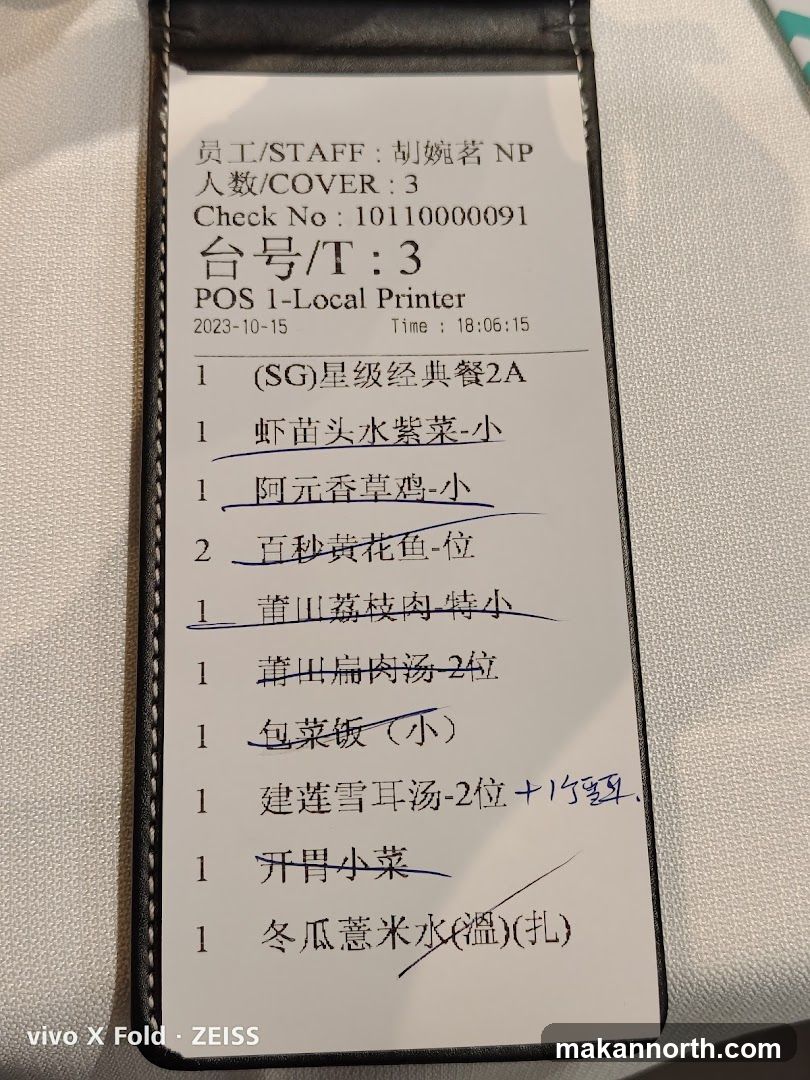 员工/STAFF : 胡婉茗 NP
人数/COVER : 3
Check No : 10110000091
台号/T : 3
POS 1-Local Printer
2023-10-15 Time : 18:06:15
1 (SG)星级经典餐2A
1 虾苗头水紫菜-小
1 阿元香草鸡-小
2 百秒黄花鱼-位
1 莆田荔枝肉-特小
1 莆田扁肉汤-2位
1 包菜饭（小）
1 建莲雪耳汤-2位 +1个雪耳.
1 开胃小菜
1 冬瓜薏米水(溫)(扎)
vivo X Fold · ZEISS
makannorth.com